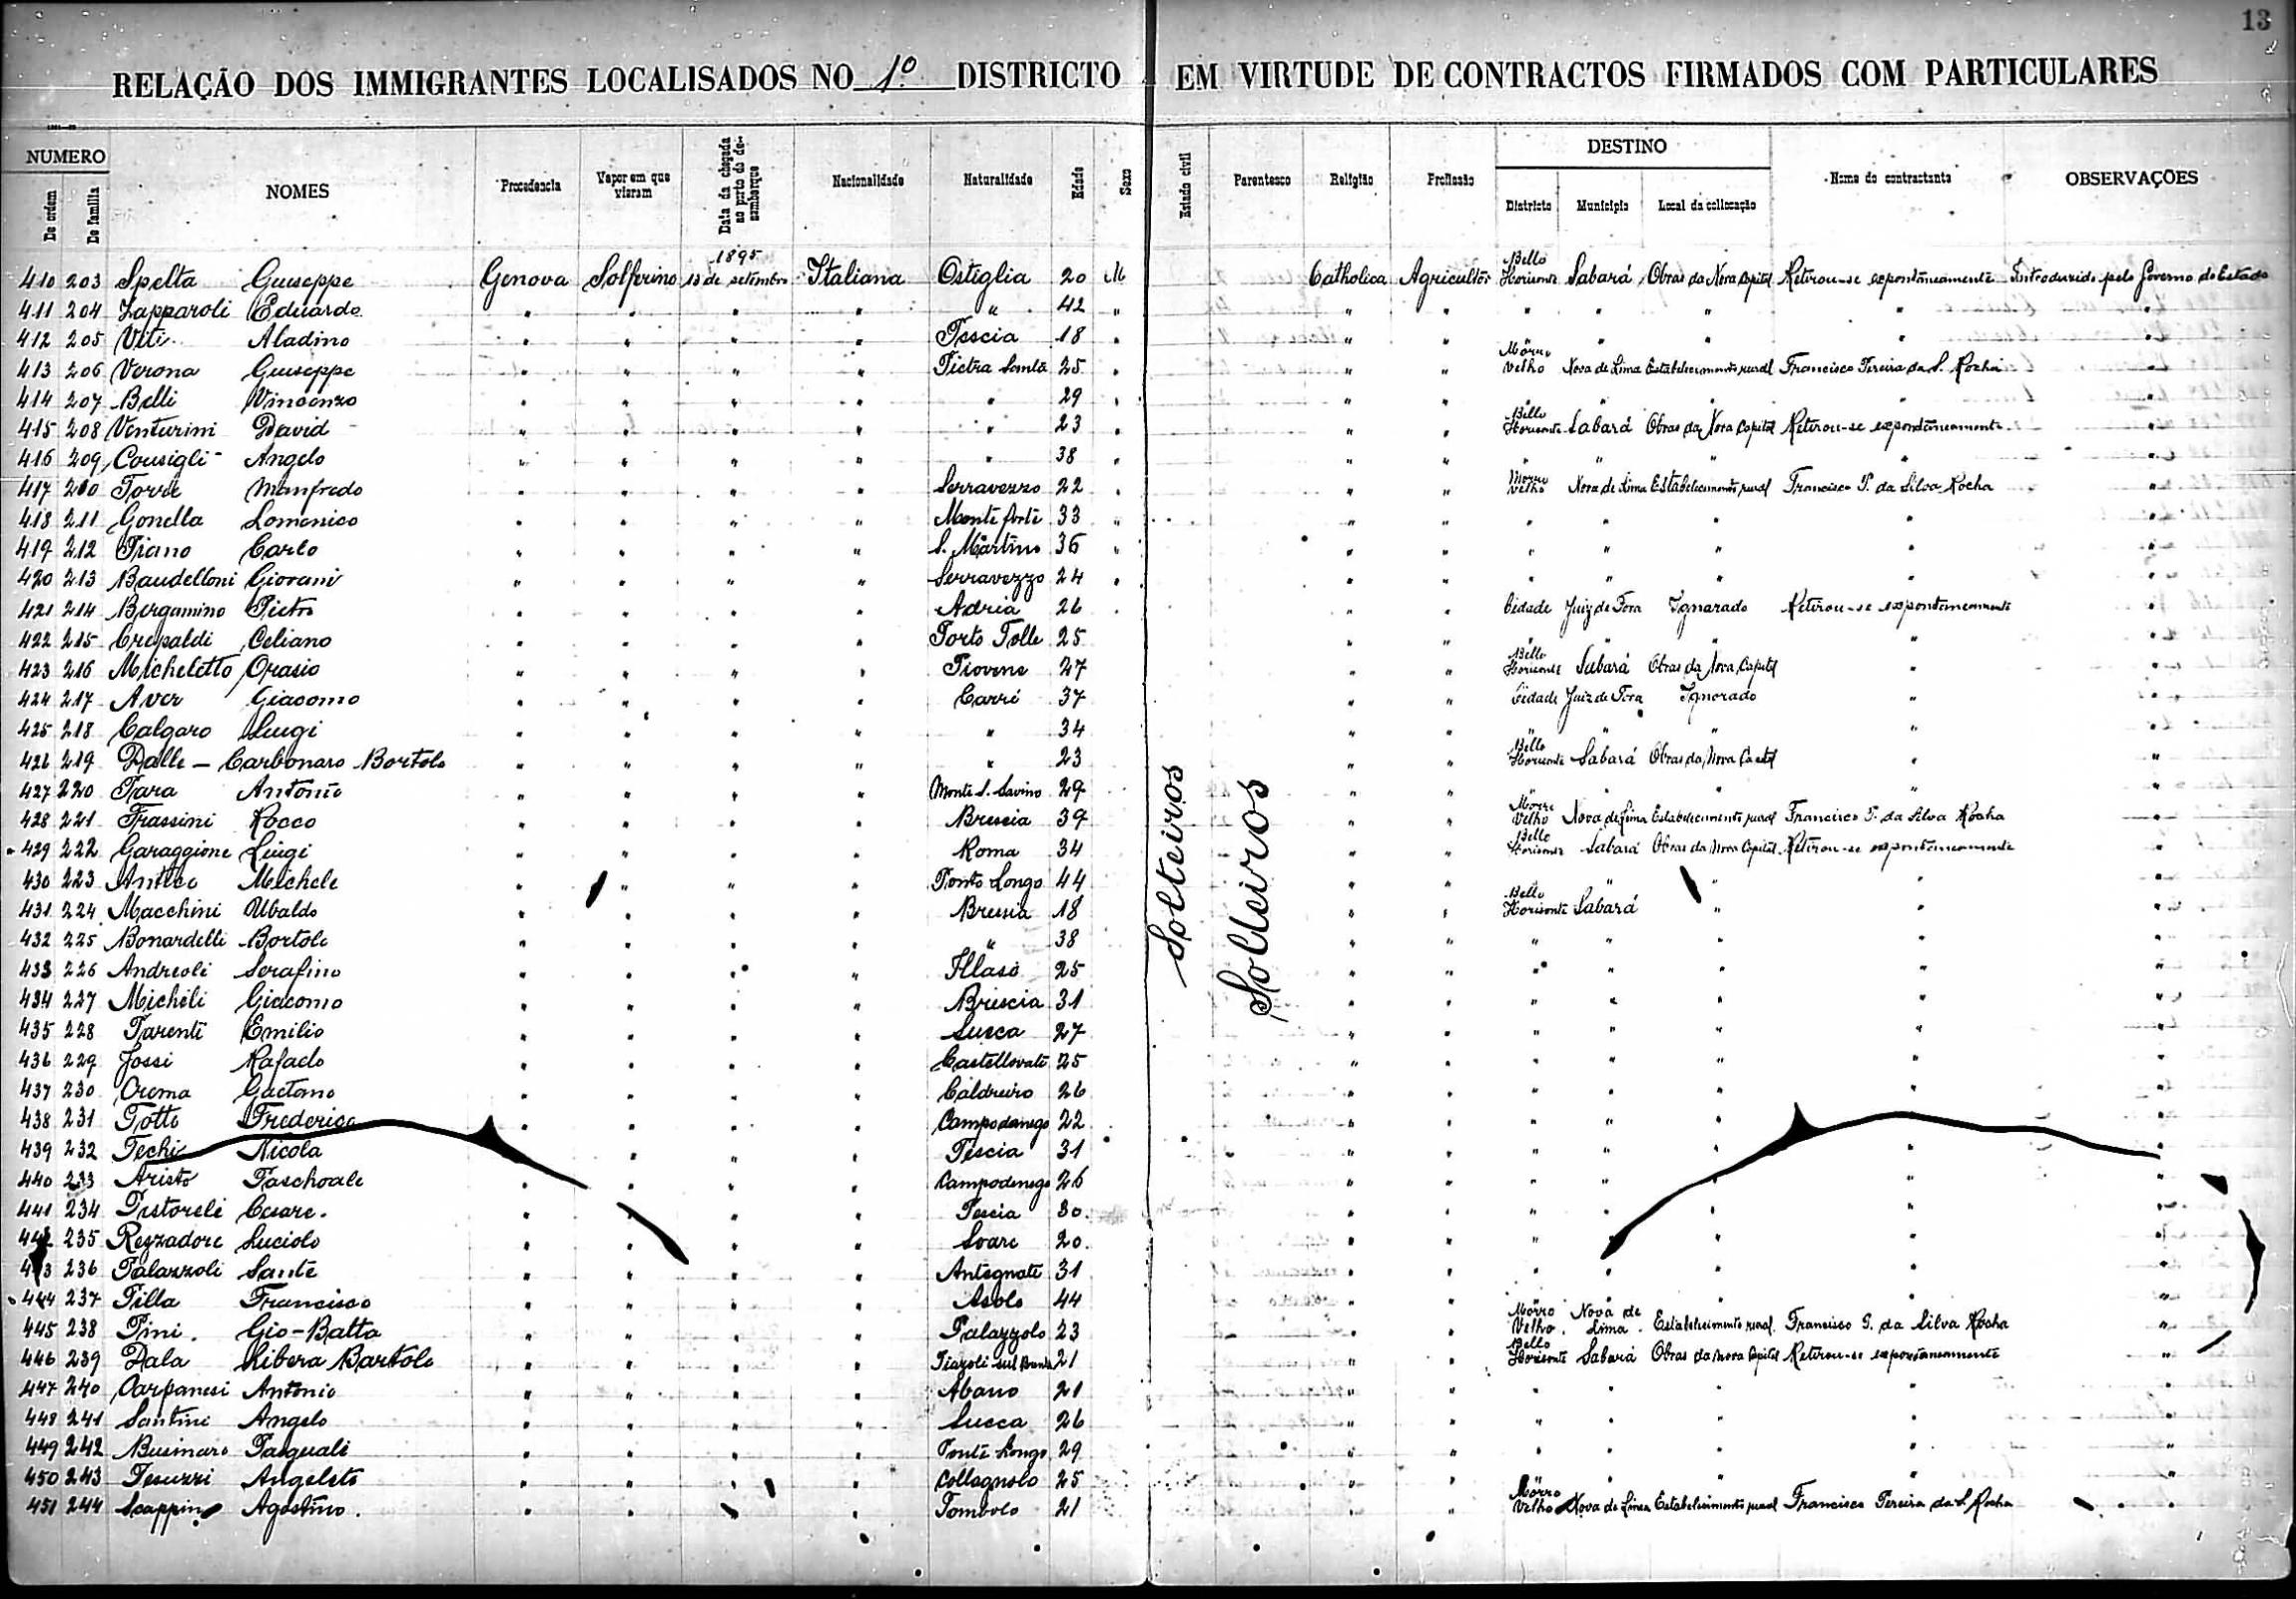 13
RELAÇÃO DOS IMMIGRANTES LOCALISADOS NO 1º DISTRICTO EM VIRTUDE DE CONTRACTOS FIRMADOS COM PARTICULARES
NUMERO De ordem De familia NOMES Procedencia Vapor em que vieram Data da chegada ao porto do desembarque Nacionalidade Naturalidade Edade Sexo Estado civil Parentesco Religião Profissão DESTINO Districto Municipio Local da collocação Nome do contractante OBSERVAÇÕES
410 203 Spelta Guiseppe Genova Solferino 1895 13 de setembro Italiana Ostiglia 20 M Catholica Agricultor Bello Horisonte Sabará Obras da Nova Capital Retirou-se expontaneamente Introduzido pelo Governo do Estado
411 204 Zapparoli Eduardo " " " " " 42 " " " " " " " "
412 205 Viti Aladino " " " " Pescia 18 " " " " " " " "
413 206 Verona Guiseppe " " " " Pietra Santa 25 " " " Morro Velho Nova de Lima Estabelecimento rural Francisco Pereira da S. Rocha "
414 207 Belli Vincenzo " " " " " 29 " " " " " " " "
415 208 Venturini David " " " " " 23 " " " Bello Horisonte Sabará Obras da Nova Capital Retirou-se expontaneamente "
416 209 Consigli Angelo " " " " " 38 " " " " " " " "
417 210 Torre Manfredo " " " " Serravezzo 22 " " " Morro Velho Nova de Lima Estabelecimento rural Francisco P. da Silva Rocha "
418 211 Gonella Domenico " " " " Monte forte 33 " " " " " " " "
419 212 Piano Carlo " " " " S. Martino 36 " " " " " " " "
420 213 Baudelloni Giovani " " " " Serravezzo 24 " " " " " " " "
421 214 Bergamino Pietro " " " " Adria 26 " " " Cidade Juiz de Fora Ignorado Retirou-se expontaneamente "
422 215 Crepaldi Celiano " " " " Porto Tolle 25 " " " " " " "
423 216 Micheletto Orasio " " " " Piovene 27 " " Bello Horisonte Sabará Obras da Nova Capital " "
424 217 Aver Giacomo " " " " Carré 37 " " Cidade Juiz de Fora Ignorado " "
425 218 Calgaro Luigi " " " " " 34 " " " " " " "
426 219 Dalle - Carbonaro Bortolo " " " " " 23 " " Bello Horisonte Sabará Obras da Nova Capital " "
427 220 Para Antonio " " " " Monte S. Savino 29 " " " " " " "
428 221 Frassini Rocco " " " " Brescia 39 " " Morro Velho Nova de Lima Estabelecimento rural Francisco P. da Silva Rocha "
429 222 Garaggione Luigi " " " " Roma 34 " " Bello Horisonte Sabará Obras da Nova Capital Retirou-se expontaneamente "
430 223 Antico Michele " " " " Ponto Longo 44 " " " " " " "
431 224 Macchini Ubaldo " " " " Brescia 18 " " Bello Horisonte Sabará " " "
432 225 Bonardelli Bortolo " " " " " 38 " " " " " " "
433 226 Andreoli Serafino " " " " Illasi 25 " " " " " " "
434 227 Micheli Giacomo " " " " Brescia 31 " " " " " " "
435 228 Parenti Emilio " " " " Lucca 27 " " " " " " "
436 229 Jossi Rafaelo " " " " Castellovati 25 " " " " " " "
437 230 Crema Gaetano " " " " Caldreiro 26 " " " " " " "
438 231 Totte Frederico " " " " Campodarsego 22 " " " " " " "
439 232 Techi Nicola " " " " Pescia 31 " " " " " " "
440 233 Aristo Paschoale " " " " Campodarsego 26 " " " " " " "
441 234 Pistoreli Cesare. " " " " Pescia 30. " " " " " " "
442 235 Rezzadore Luciolo " " " " Soave 20. " " " " " " "
443 236 Palazzoli Sante " " " " Antegnate 31 " " " " " " "
444 237 Pilla Francisco " " " " Asolo 44 " " " " " " "
445 238 Pini. Gio-Batta " " " " Palazzolo 23 " " Morro Velho. Nova de Lima. Estabelecimento rural Francisco P. da Silva Rocha "
446 239 Dala Libera Bartolo " " " " Piazoli sul Brenta 21 " " Bello Horisonte Sabará Obras da Nova Capital Retirou-se expontaneamente "
447 240 Carpanesi Antonio " " " " Abano 21 " " " " " " "
448 241 Santini Angelo " " " " Lucca 26 " " " " " " "
449 242 Businaro Pasquali " " " " Ponte Longo 29 " " " " " " "
450 243 Pesuzzi Angeleto " " " " Collagnolo 25 " " " " " " "
451 244 Scappin Agostino. " " " " Tombolo 21 " " Morro Velho Nova de Lima Estabelecimento rural Francisco Pereira da S Rocha "
Solteiros
Solteiros